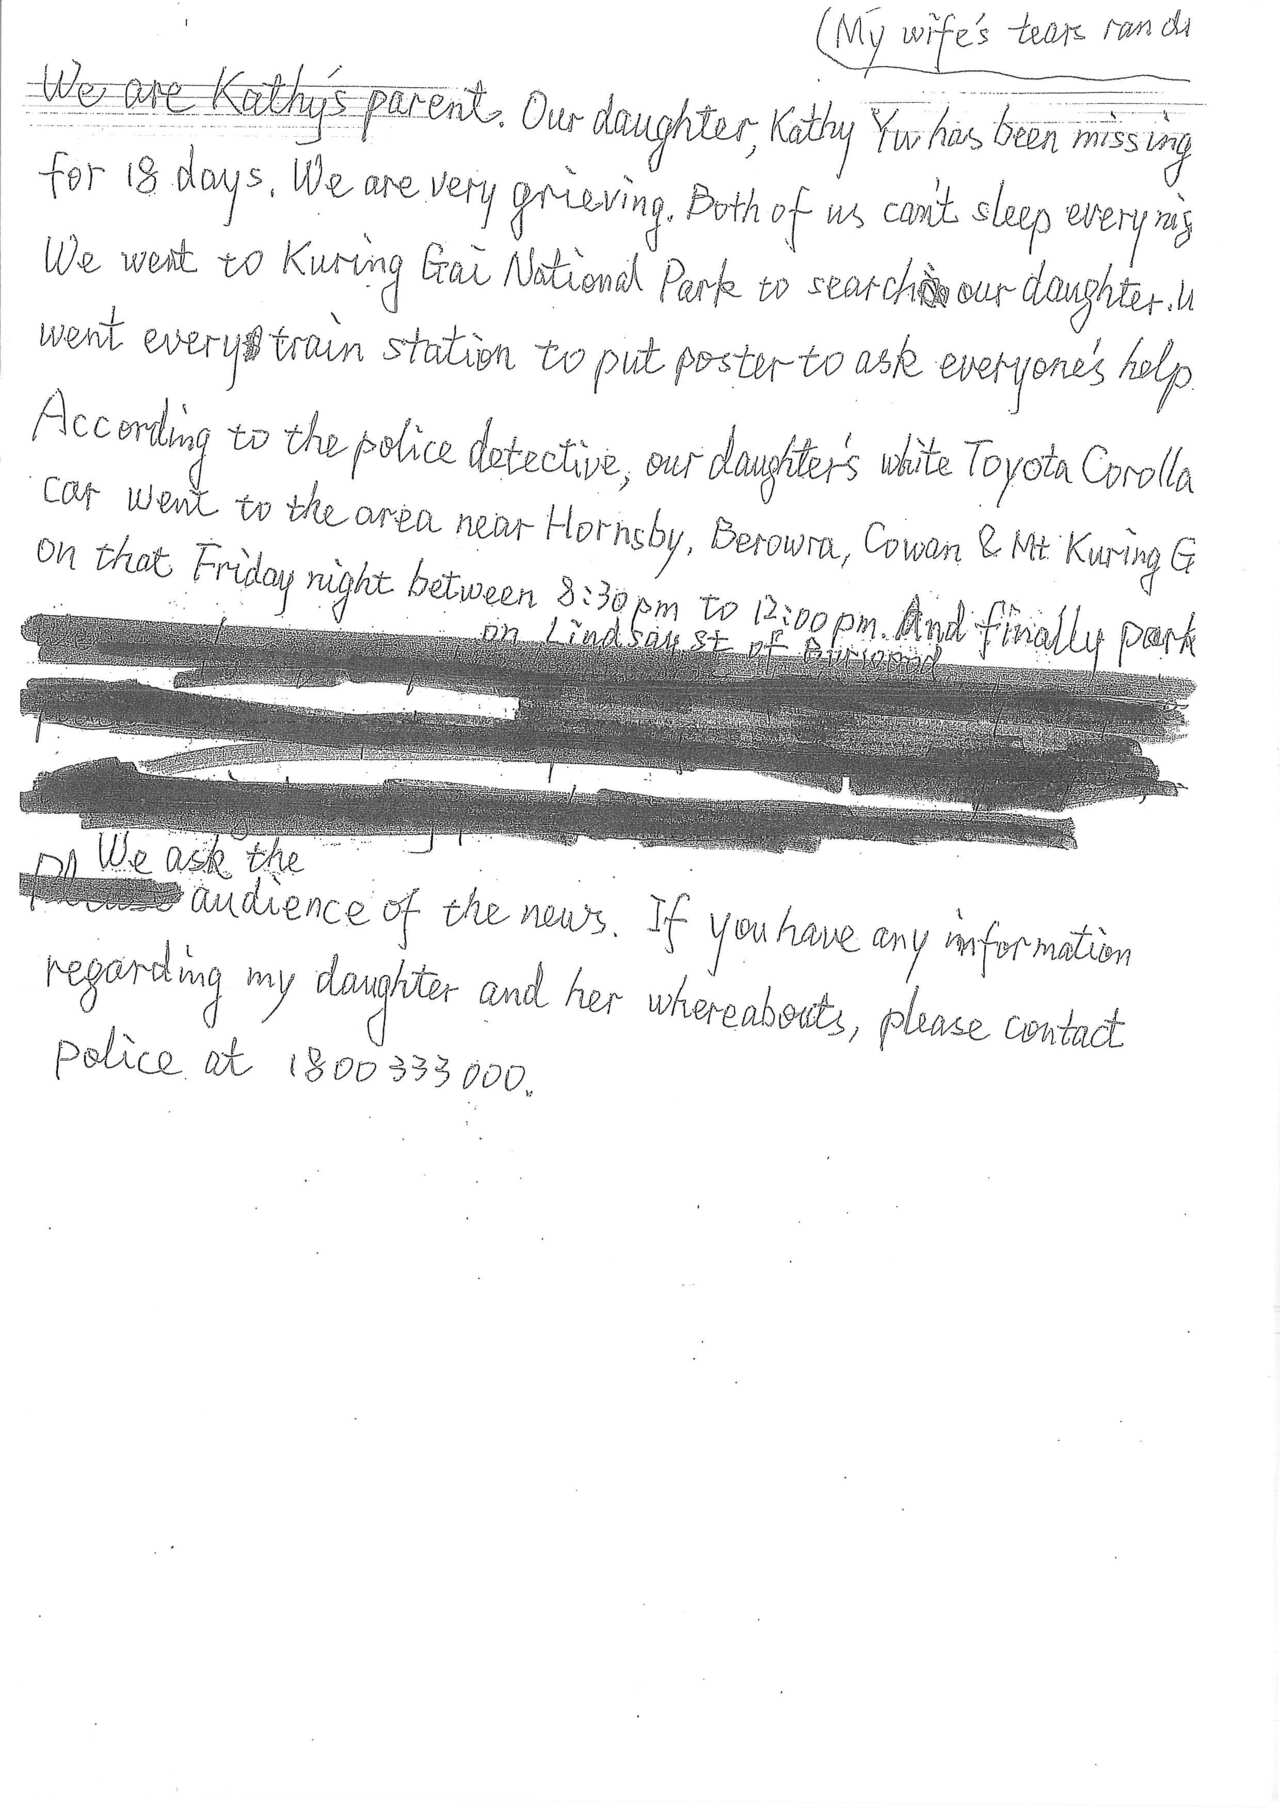 (My wife's tears ran
We are Kathy's parent. Our daughter, Kathy Yu has been missing
for 18 days. We are very grieving. Both of us can't sleep every
We went to Kuring Gai National Park to search our daughter.
went every train station to put poster to ask everyone's help
According to the police detective, our daughter's white Toyota Corolla
car went to the area near Hornsby, Berowra, Cowan & Mt Kuring G
on that Friday night between 8:30pm to 12:00pm. And finally park
on Lindsay st of Burwood
We ask the
audience of the news. If you have any information
regarding my daughter and her whereabouts, please contact
police at 1800 333 000.